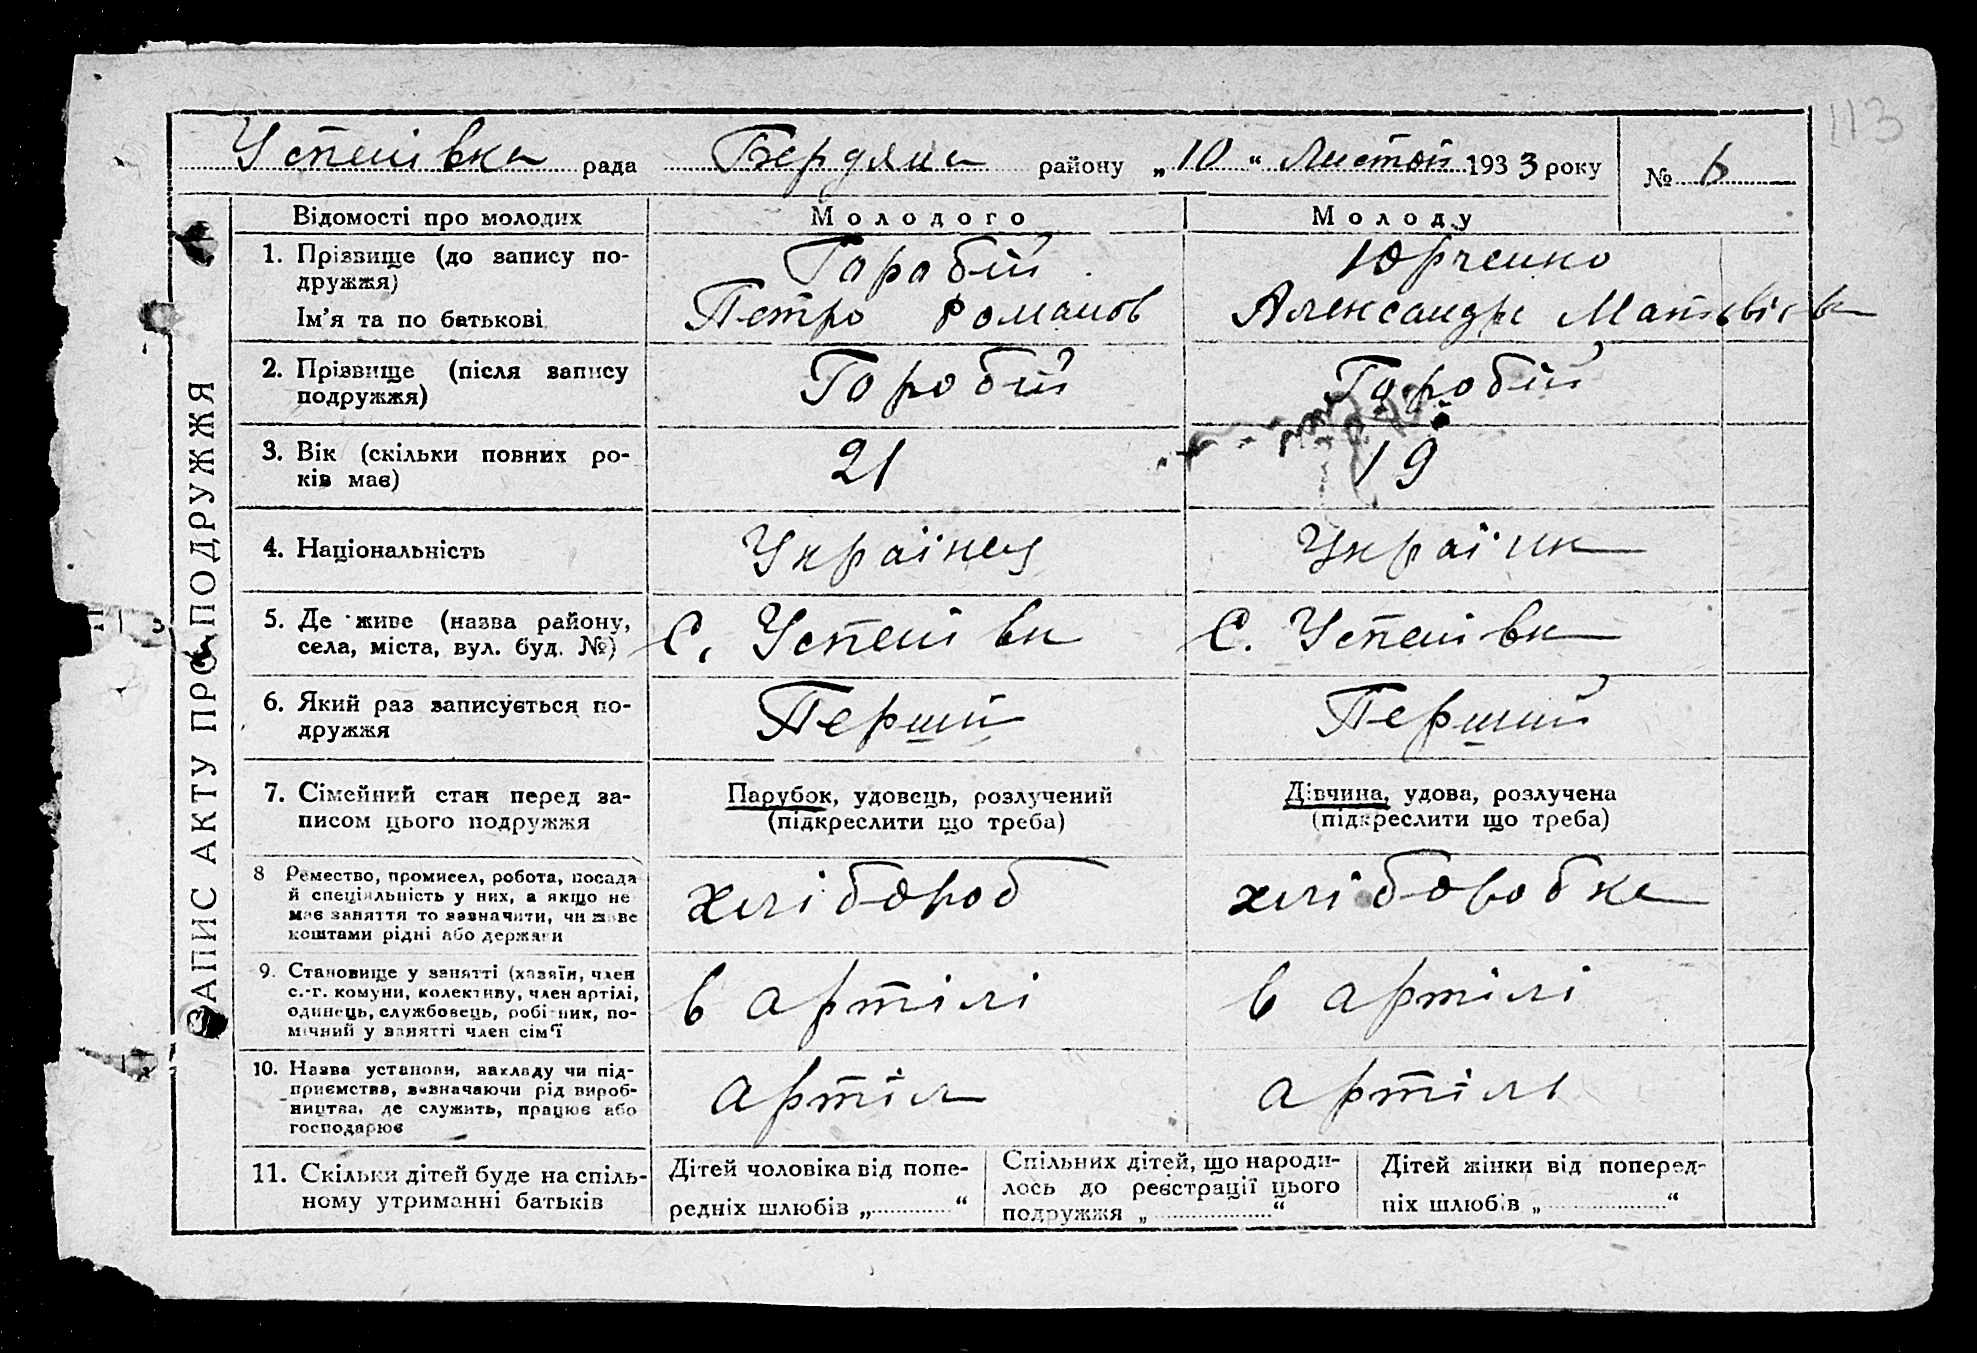 113
Успенівка рада Бердянс району „10“ Листоп 1933 року № 6
ЗАПИС АКТУ ПРО ПОДРУЖЖЯ
Відомості про молодих Молодого Молоду
1. Прізвище (до запису по-
дружжя)
Горобій Юрченко
Ім'я та по батькові
Петро Романов Александра Матвієв
2. Прізвище (після запису
подружжя)
Горобій Горобій
3. Вік (скільки повних ро-
ків має)
21 19
4. Національність Українец Українк
5. Де живе (назва району,
села, міста, вул. буд. №)
С. Успенівк С. Успенівк
6. Який раз записується по-
дружжя
Перший Перший
7. Сімейний стан перед за-
писом цього подружжя
Парубок, удовець, розлучений
(підкреслити що треба)
Дівчина, удова, розлучена
(підкреслити що треба)
8 Ремество, промисел, робота, посада
й спеціяльність у них, а якщо не
має заняття то зазначити, чи живе
коштами рідні або держави
хлібороб хліборобка
9. Становище у занятті (хазяїн, член
с.-г. комуни, колективу, член артілі,
одинець, службовець, робітник, по-
мічний у занятті член сім'ї
в артілі в артілі
10. Назва установи, закладу чи під-
приємства, зазначаючи рід вироб-
ництва, де служить, працює або
господарює
артіл артіль
11. Скільки дітей буде на спіль-
ному утриманні батьків
Дітей чоловіка від попе-
редніх шлюбів „ “
Спільних дітей, що народи-
лось до реєстрації цього
подружжя „ “
Дітей жінки від поперед-
ніх шлюбів „ “